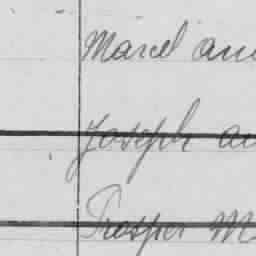 Marcel au
Joseph au
Prosper M